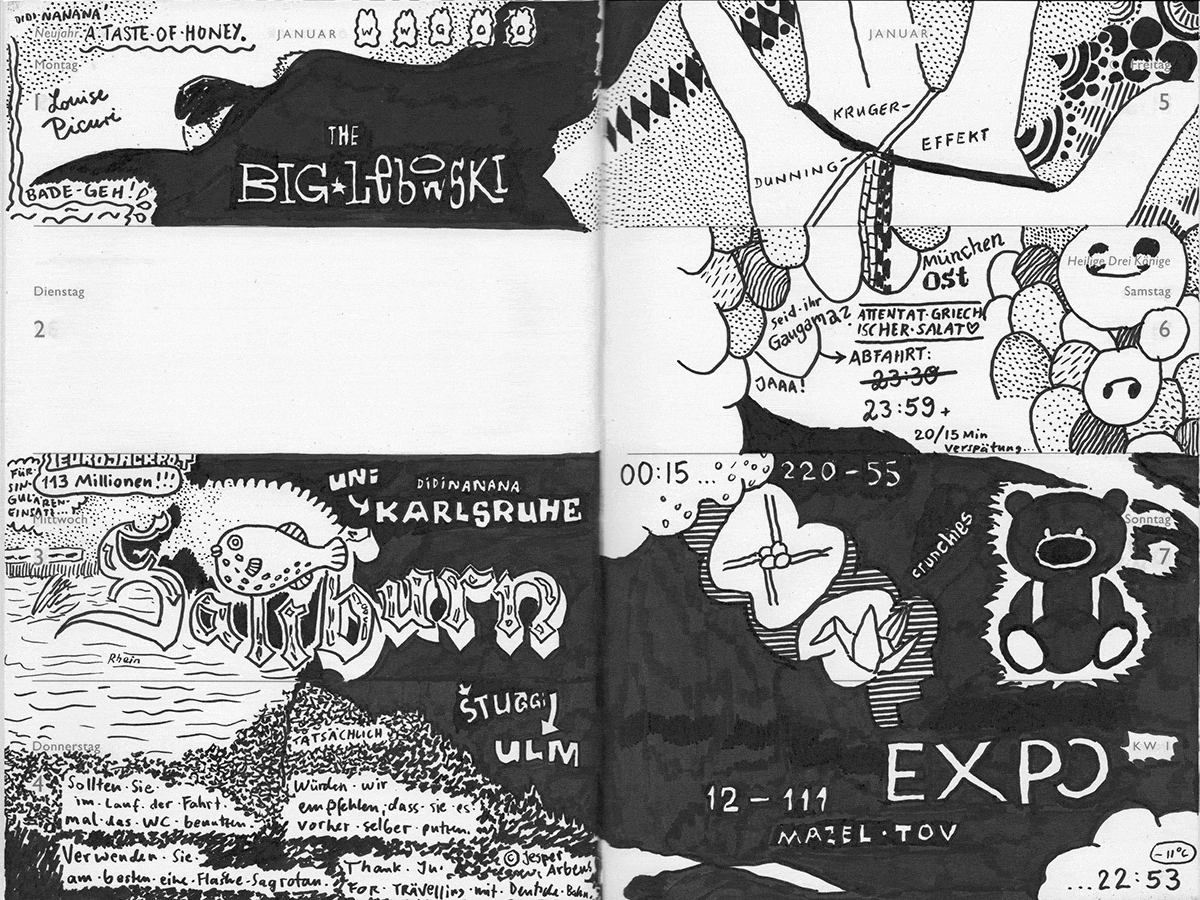 DIDI·NANANA'
Neujahr
A·TASTE·OF·HONEY.
JANUAR
W W G O O
Montag
1
Louise
Picuri
THE
BIG★LEBOWSKI
BADE-GEH!
Dienstag
2
EUROJACKPOT
113 Millionen!!!
FÜR·
SIN-
GULÄREN·
EINSATZ...
Mittwoch
3
UNI
DIDINANANA
KARLSRUHE
Rhein
ŠTUGGI
ULM
Donnerstag
4
TATSÄCHLICH
Sollten·Sie·
im·Lauf·der·Fahrt·
mal·das·WC·benutzen·
Würden·wir
empfehlen·dass·sie·es·
vorher·selber·putzen·
Verwenden·Sie·
am·besten·eine·Flasche·Sagrotan.
© Jesper
Arbens
Thank·Ju·
FOR·TRÄVELLING·mit·Deutsche·Bahn.
JANUAR
Freitag
5
KRUGER-
EFFEKT
DUNNING-
München
Ost
Heilige Drei Könige
Samstag
6
seid·ihr
Gaugamaz
JAAA!
ATTENTAT·GRIECH
ISCHER·SALAT♡
ABFAHRT:
23:30
23:59+
20/15 Min
Verspätung...
00:15...
220-55
crunchies
Sonntag
7
EXPO
KW: 1
12-111
MAZEL·TOV
-11°C
...22:53